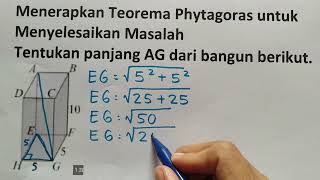 Menerapkan Teorema Phytagoras untuk
Menyelesaikan Masalah
Tentukan panjang AG dari bangun berikut.
A B
D C
10
E F
5
H 5 G
EG = √5² + 5²
EG = √25 + 25
EG : √50
EG : √2